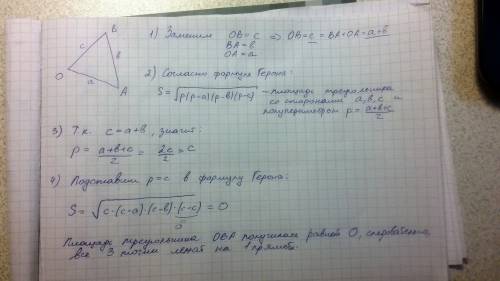 B
c
b
O
a
A
1) Заменим OB = c ⇒ OB = c = BA + OA = a+b
BA = b
OA = a
2) Согласно формуле Герона:
S = √p(p-a)(p-b)(p-c) — площадь треугольника
со сторонами a, b, c и
полупериметром p = a+b+c/2
3) Т.к. c = a+b, значит:
p = a+b+c/2 = 2c/2 = c
4) Подставим p = c в формулу Герона:
S = √c·(c-a)·(c-b)·(c-c) = 0
0
Площадь треугольника OBA получилась равной 0, следовательно
все 3 точки лежат на 1 прямой.